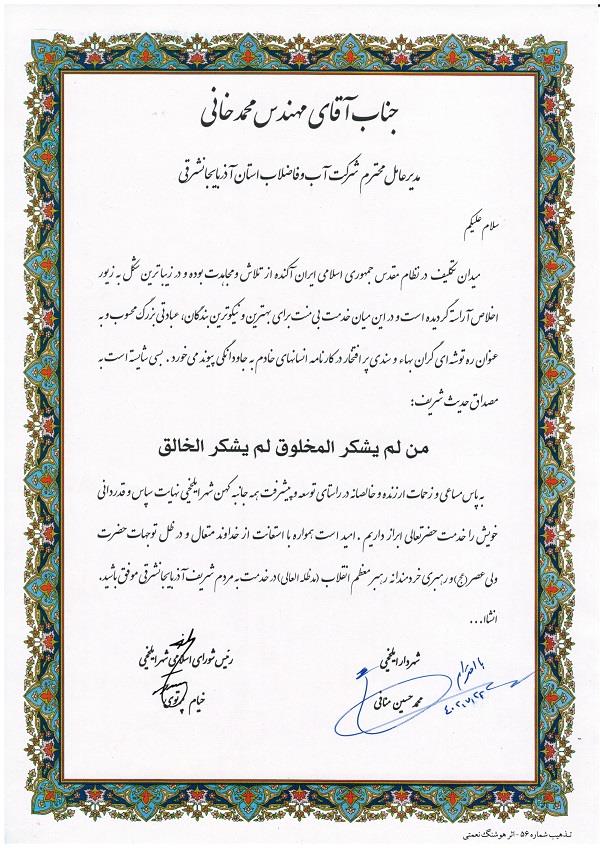 جناب آقای مهندس محمدخانی
مدیرعامل محترم شرکت آب و فاضلاب استان آذربایجانشرقی
سلام علیکم
میدان تکلیف در نظام مقدس جمهوری اسلامی ایران آکنده از تلاش و مجاهدت بوده و در زیباترین شکل به زیور
اخلاص آراسته گردیده است و در این میان خدمت بی منت برای بهترین و نیکوترین بندگان، عبادتی بزرگ محسوب و به
عنوان ره توشه ای گران بهاء و سندی پر افتخار در کارنامه انسانهای خادم به جاودانگی پیوند می خورد. بسی شایسته است به
مصداق حدیث شریف:
من لم یشکر المخلوق لم یشکر الخالق
به پاس مساعی و زحمات ارزنده و خالصانه در راستای توسعه و پیشرفت همه جانبه کهن شهر ایلخچی نهایت سپاس و قدردانی
خویش را خدمت حضرتعالی ابراز داریم. امید است همواره با استعانت از خداوند متعال و در ظل توجهات حضرت
ولی عصر(عج) و رهبری خردمندانه رهبر معظم انقلاب (مدظله العالی) در خدمت به مردم شریف آذربایجانشرقی موفق باشید.
انشاا...
با احترام
شهردار ایلخچی
محمد حسین منانی
۴۰۲،۷،۲۳
رئیس شورای اسلامی شهر ایلخچی
خیام پرتوی
تذهیب شماره ۵۶ - اثر هوشنگ نعمتی